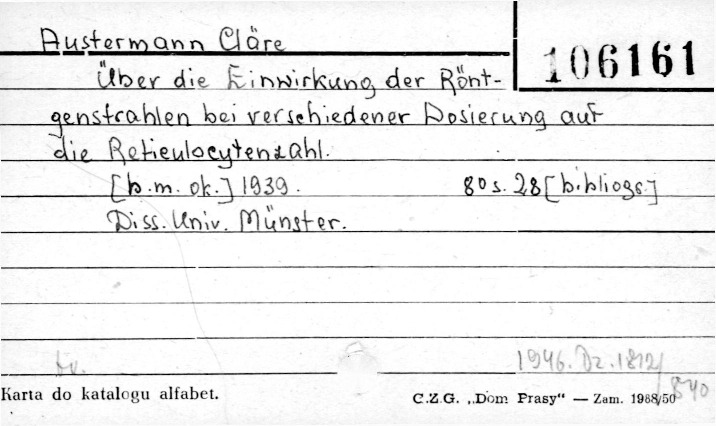 Austermann Cläre
106161
Über die Einwirkung der Rönt-
genstrahlen bei verschiedener Dosierung auf
die Reticulocytenzahl.
[b.m. ok.] 1939. 80 s. 28 [bibliogr.]
Diss. Univ. Münster.
1946. Dz. 1812/
840
Karta do katalogu alfabet.
C.Z.G. „Dom Prasy“ — Zam. 1988/50